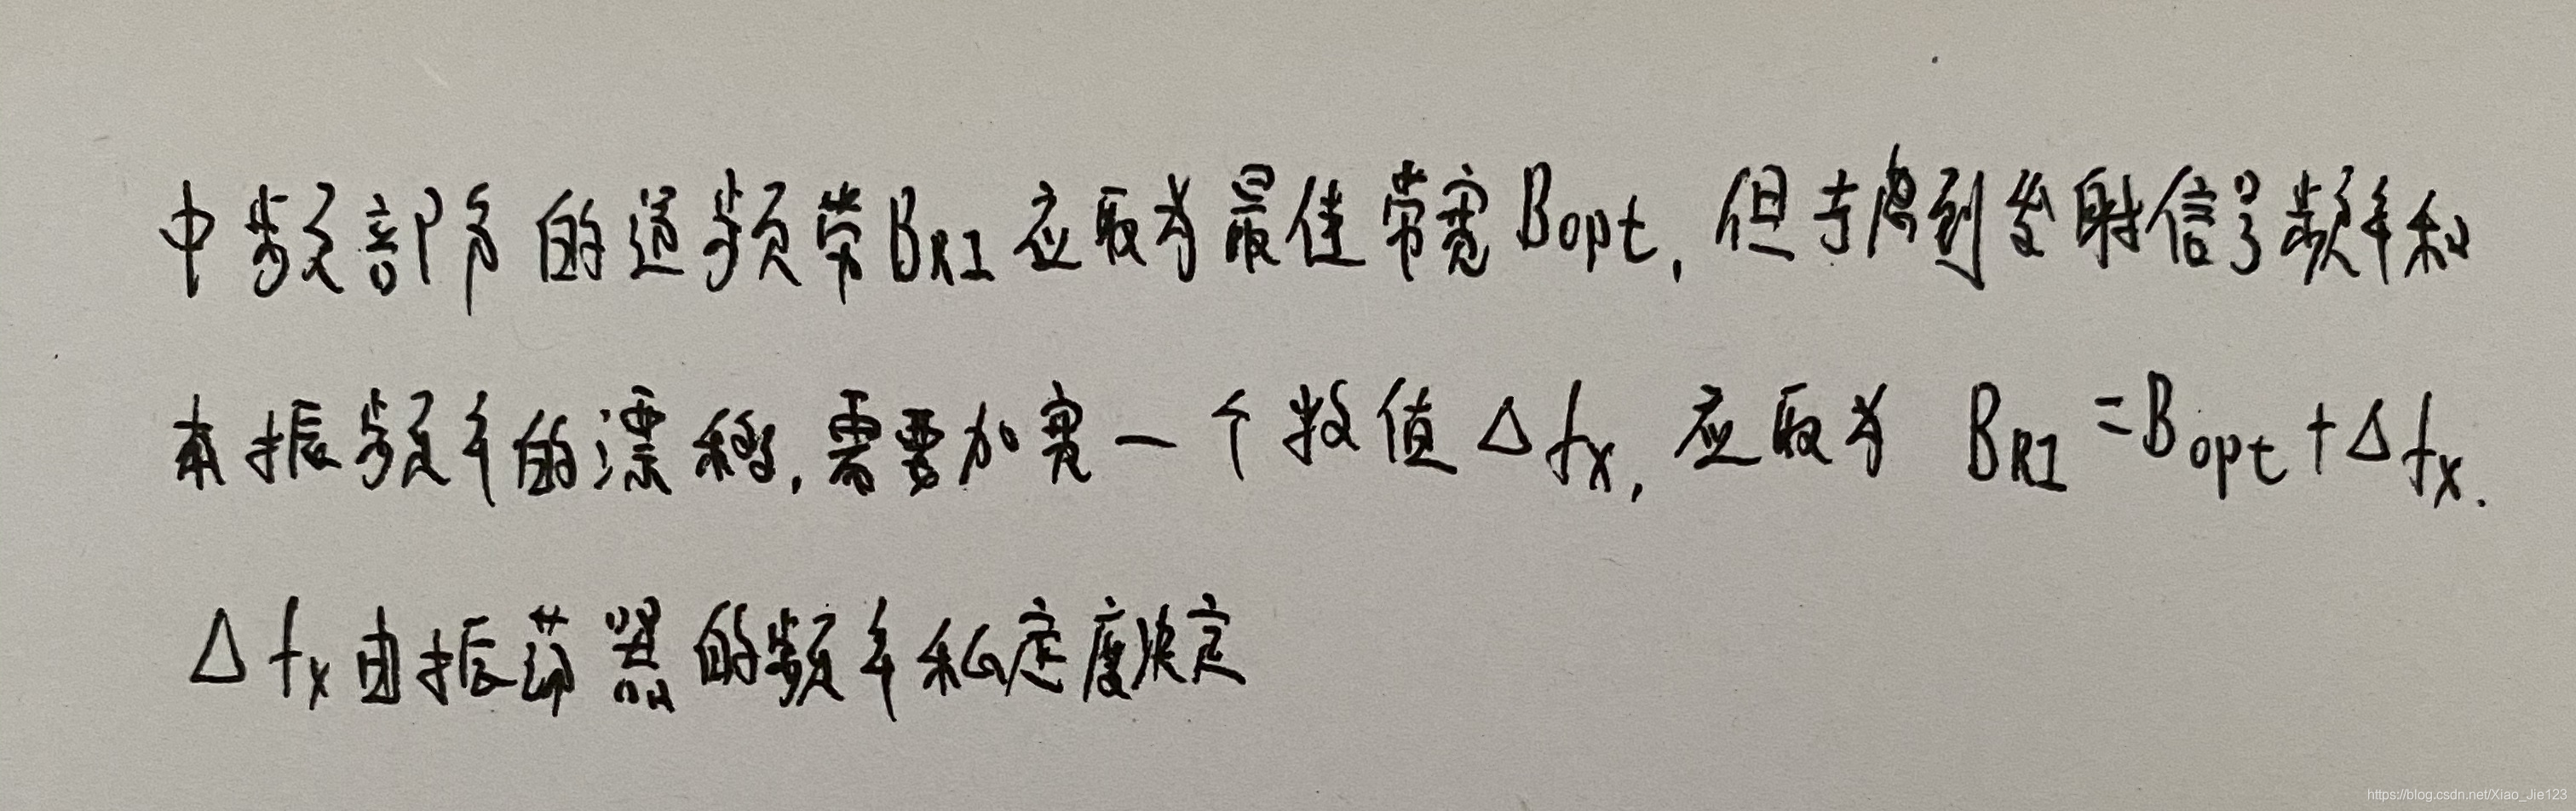 中频部分的通频带BRI应取为最佳带宽Bopt,但考虑到发射信号频率和
本振频率的漂移,需要加宽一个数值Δfx,应取为 BRI=Bopt+Δfx.
Δfx由振荡器的频率稳定度决定
https://blog.csdn.net/Xiao_Jie123